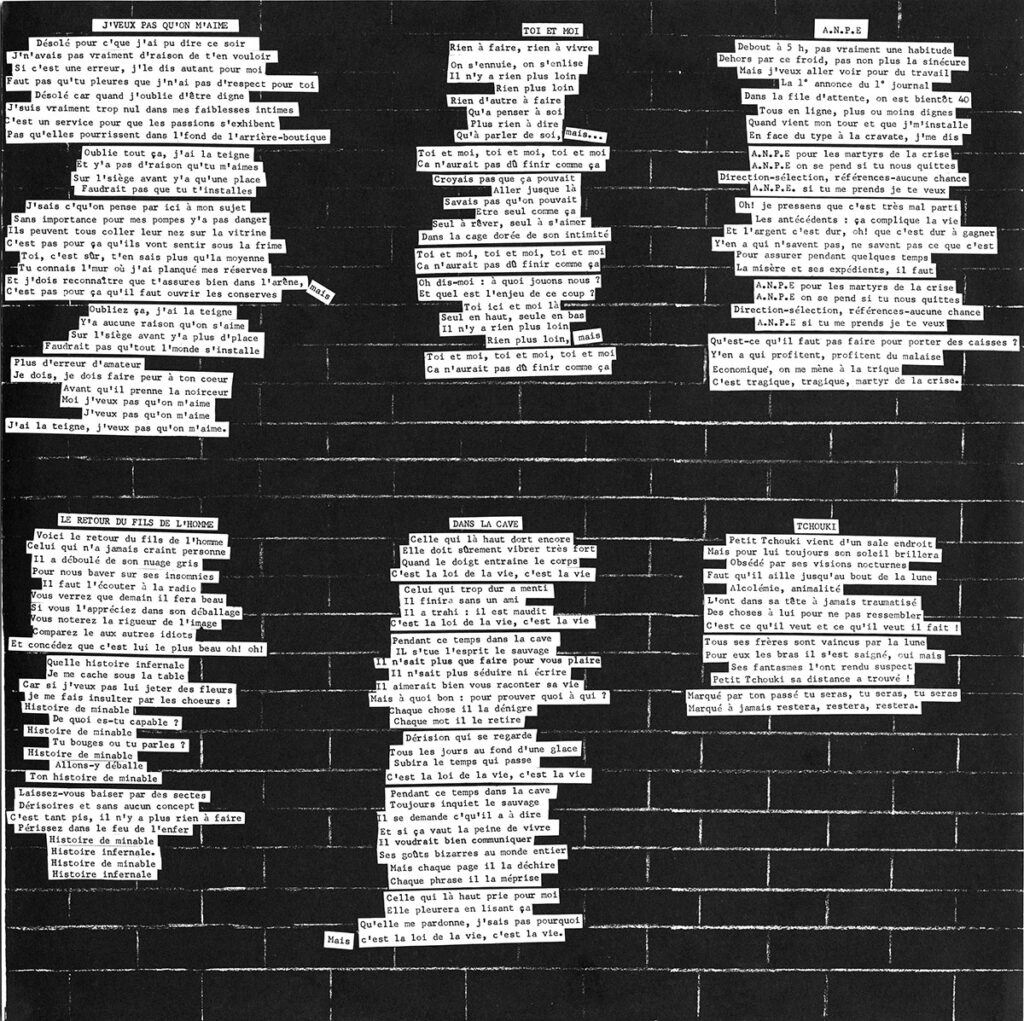 J'VEUX PAS QU'ON M'AIME
Désolé pour c'que j'ai pu dire ce soir
J'n'avais pas vraiment d'raison de t'en vouloir
Si c'est une erreur, j'le dis autant pour moi
Faut pas qu'tu pleures que j'n'ai pas d'respect pour toi
Désolé car quand j'oublie d'être digne
J'suis vraiment trop nul dans mes faiblesses intimes
C'est un service pour que les passions s'exhibent
Pas qu'elles pourrissent dans l'fond de l'arrière-boutique
Oublie tout ça, j'ai la teigne
Et y'a pas d'raison qu'tu m'aimes
Sur l'siège avant y'a qu'une place
Faudrait pas que tu t'installes
J'sais c'qu'on pense par ici à mon sujet
Sans importance pour mes pompes y'a pas danger
Ils peuvent tous coller leur nez sur la vitrine
C'est pas pour ça qu'ils vont sentir sous la frime
Toi, c'est sûr, t'en sais plus qu'la moyenne
Tu connais l'mur où j'ai planqué mes réserves
Et j'dois reconnaître que t'assures bien dans l'arêne, mais
C'est pas pour ça qu'il faut ouvrir les conserves
Oubliez ça, j'ai la teigne
Y'a aucune raison qu'on s'aime
Sur l'siège avant y'a plus d'place
Faudrait pas qu'tout l'monde s'installe
Plus d'erreur d'amateur
Je dois, je dois faire peur à ton coeur
Avant qu'il prenne la noirceur
Moi j'veux pas qu'on m'aime
J'veux pas qu'on m'aime
J'ai la teigne, j'veux pas qu'on m'aime.
TOI ET MOI
Rien à faire, rien à vivre
On s'ennuie, on s'enlise
Il n'y a rien plus loin
Rien plus loin
Rien d'autre à faire
Qu'a penser à soi
Plus rien à dire
Qu'à parler de soi, mais...
Toi et moi, toi et moi, toi et moi
Ca n'aurait pas dû finir comme ça
Croyais pas que ça pouvait
Aller jusque là
Savais pas qu'on pouvait
Etre seul comme ça
Seul à rêver, seul à s'aimer
Dans la cage dorée de son intimité
Toi et moi, toi et moi, toi et moi
Ca n'aurait pas dû finir comme ça
Oh dis-moi : à quoi jouons nous ?
Et quel est l'enjeu de ce coup ?
Toi ici et moi là
Seul en haut, seule en bas
Il n'y a rien plus loin
Rien plus loin, mais
Toi et moi, toi et moi, toi et moi
Ca n'aurait pas dû finir comme ça
A.N.P.E
Debout à 5 h, pas vraiment une habitude
Dehors par ce froid, pas non plus la sinécure
Mais j'veux aller voir pour du travail
La 1° annonce du 1° journal
Dans la file d'attente, on est bientôt 40
Tous en ligne, plus ou moins dignes
Quand vient mon tour et que j'm'installe
En face du type à la cravate, j'me dis
A.N.P.E pour les martyrs de la crise
A.N.P.E on se pend si tu nous quittes
Direction-sélection, références-aucune chance
A.N.P.E. si tu me prends je te veux
Oh! je pressens que c'est très mal parti
Les antécédents : ça complique la vie
Et l'argent c'est dur, oh! que c'est dur à gagner
Y'en a qui n'savent pas, ne savent pas ce que c'est
Pour assurer pendant quelques temps
La misère et ses expédients, il faut
A.N.P.E pour les martyrs de la crise
A.N.P.E on se pend si tu nous quittes
Direction-sélection, références-aucune chance
A.N.P.E si tu me prends je te veux
Qu'est-ce qu'il faut pas faire pour porter des caisses ?
Y'en a qui profitent, profitent du malaise
Economique, on me mène à la trique
C'est tragique, tragique, martyr de la crise.
LE RETOUR DU FILS DE L'HOMME
Voici le retour du fils de l'homme
Celui qui n'a jamais craint personne
Il a déboulé de son nuage gris
Pour nous baver sur ses insomnies
Il faut l'écouter à la radio
Vous verrez que demain il fera beau
Si vous l'appréciez dans son déballage
Vous noterez la rigueur de l'image
Comparez le aux autres idiots
Et concédez que c'est lui le plus beau oh! oh!
Quelle histoire infernale
Je me cache sous la table
Car si j'veux pas lui jeter des fleurs
je me fais insulter par les choeurs :
Histoire de minable
De quoi es-tu capable ?
Histoire de minable
Tu bouges ou tu parles ?
Histoire de minable
Allons-y déballe
Ton histoire de minable
Laissez-vous baiser par des sectes
Dérisoires et sans aucun concept
C'est tant pis, il n'y a plus rien à faire
Périssez dans le feu de l'enfer
Histoire de minable
Histoire infernale.
Histoire de minable
Histoire infernale
DANS LA CAVE
Celle qui là haut dort encore
Elle doit sûrement vibrer très fort
Quand le doigt entraine le corps
C'est la loi de la vie, c'est la vie
Celui qui trop dur a menti
Il finira sans un ami
Il a trahi : il est maudit
C'est la loi de la vie, c'est la vie
Pendant ce temps dans la cave
IL s'tue l'esprit le sauvage
Il n'sait plus que faire pour vous plaire
Il n'sait plus séduire ni écrire
Il aimerait bien vous raconter sa vie
Mais à quoi bon : pour prouver quoi à qui ?
Chaque chose il la dénigre
Chaque mot il le retire
Dérision qui se regarde
Tous les jours au fond d'une glace
Subira le temps qui passe
C'est la loi de la vie, c'est la vie
Pendant ce temps dans la cave
Toujours inquiet le sauvage
Il se demande c'qu'il a à dire
Et si ça vaut la peine de vivre
Il voudrait bien communiquer
Ses goûts bizarres au monde entier
Mais chaque page il la déchire
Chaque phrase il la méprise
Celle qui là haut prie pour moi
Elle pleurera en lisant ça
Qu'elle me pardonne, j'sais pas pourquoi
Mais c'est la loi de la vie, c'est la vie.
TCHOUKI
Petit Tchouki vient d'un sale endroit
Mais pour lui toujours son soleil brillera
Obsédé par ses visions nocturnes
Faut qu'il aille jusqu'au bout de la lune
Alcolémie, animalité
L'ont dans sa tête à jamais traumatisé
Des choses à lui pour ne pas ressembler
C'est ce qu'il veut et ce qu'il veut il fait !
Tous ses frères sont vaincus par la lune
Pour eux les bras il s'est saigné, oui mais
Ses fantasmes l'ont rendu suspect
Petit Tchouki sa distance a trouvé !
Marqué par ton passé tu seras, tu seras, tu seras
Marqué à jamais restera, restera, restera.